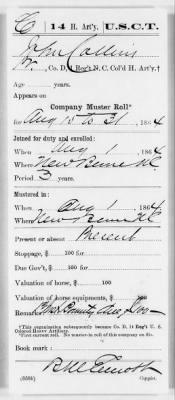 C | 14 H. Art'y. | U.S.C.T.
John Collins
Pr., Co. D, 1 Reg't N. C. Col'd H. Art'y.†
Age years.
Appears on
Company Muster Roll*
for Aug 10 to 31, 1864
Joined for duty and enrolled:
When Aug 1, 1864
Where New Berne N.C.
Period 3 years
Mustered in:
When Aug 1, 1864
Where New Berne N.C.
Present or absent Present
Stoppage, $ 100 for
Due Gov't, $ 100 for
Valuation of horse, $ 100
Valuation of horse equipments, $ 100
Remarks: Bounty
†This organization subsequently became Co. D, 14 Reg't U. S. Colored Heavy Artillery.
*First current roll. No muster-in roll of this company on file.
Book mark:
(858i) Copyist.